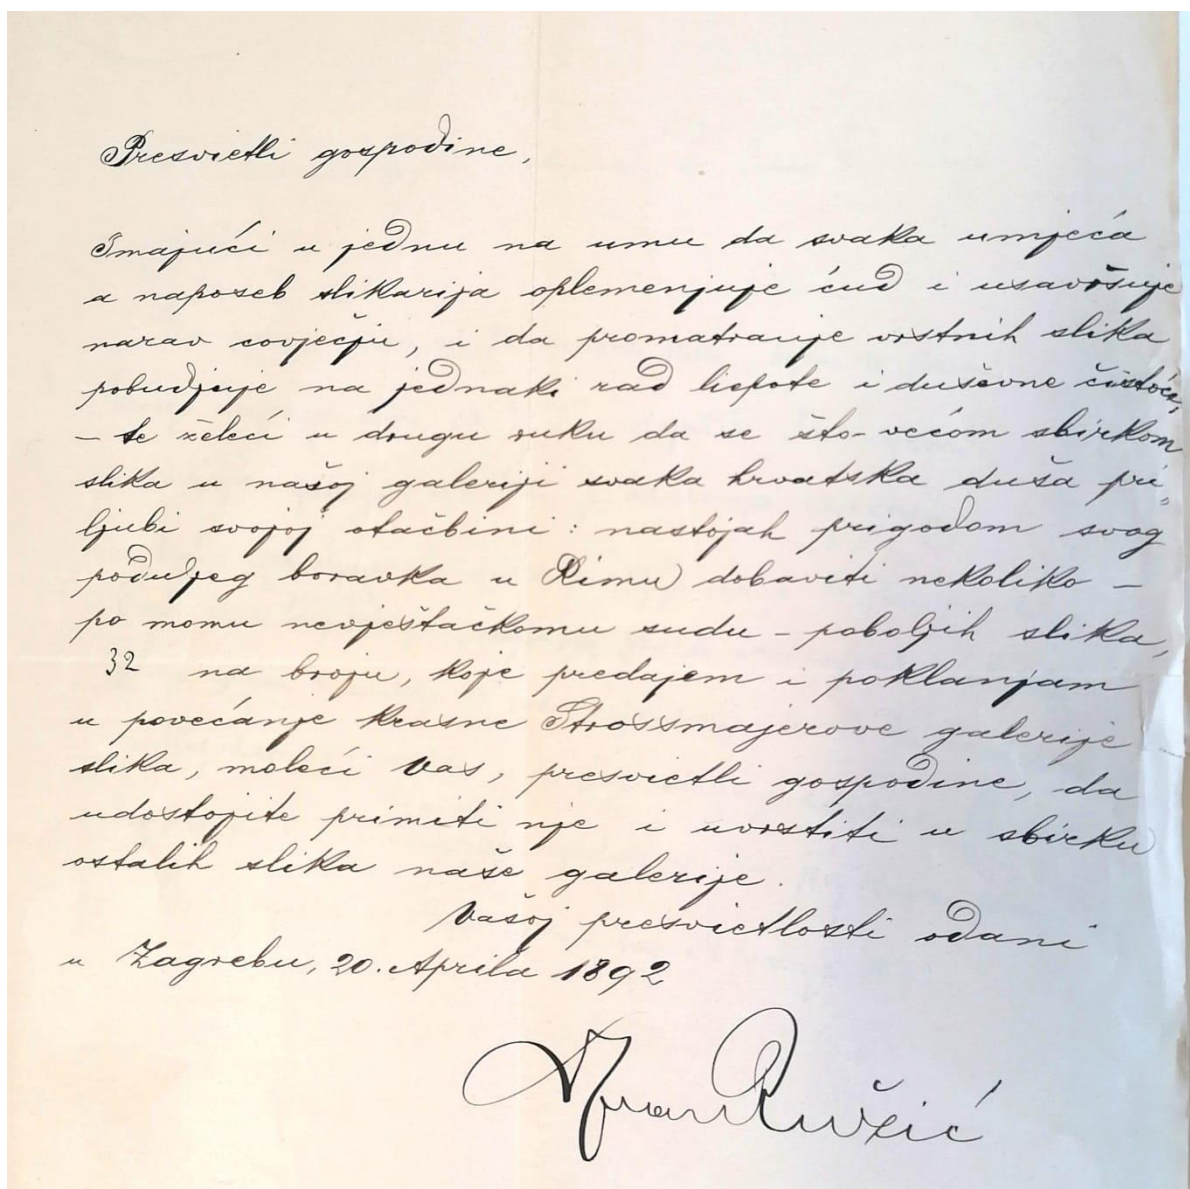 Presvietli gospodine,
Imajući u jednu na umu da svaka umjeća
a naposeb slikarija oplemenjuje ćud i usavršuje
narav covječju, i da promatranje vrstnih slika
pobudjuje na jednaki rad liepote i duševne čistoće,
– te želeći u drugu ruku da se što-većom sbirkom
slika u našoj galeriji svaka hrvatska duša pri=
ljubi svojoj otačbini: nastojah prigodom svog
poduljeg boravka u Rimu dobaviti nekoliko –
po momu nevještačkomu sudu – poboljih slika,
32 na broju, koje predajem i poklanjam
u povećanje krasne Strossmajerove galerije
slika, moleći Vas, presvietli gospodine, da
udostojite primiti nje i uvrstiti u sbirku
ostalih slika naše galerije.
Vašoj presvietlosti odani
u Zagrebu, 20. Aprila 1892
Ivan Ružić